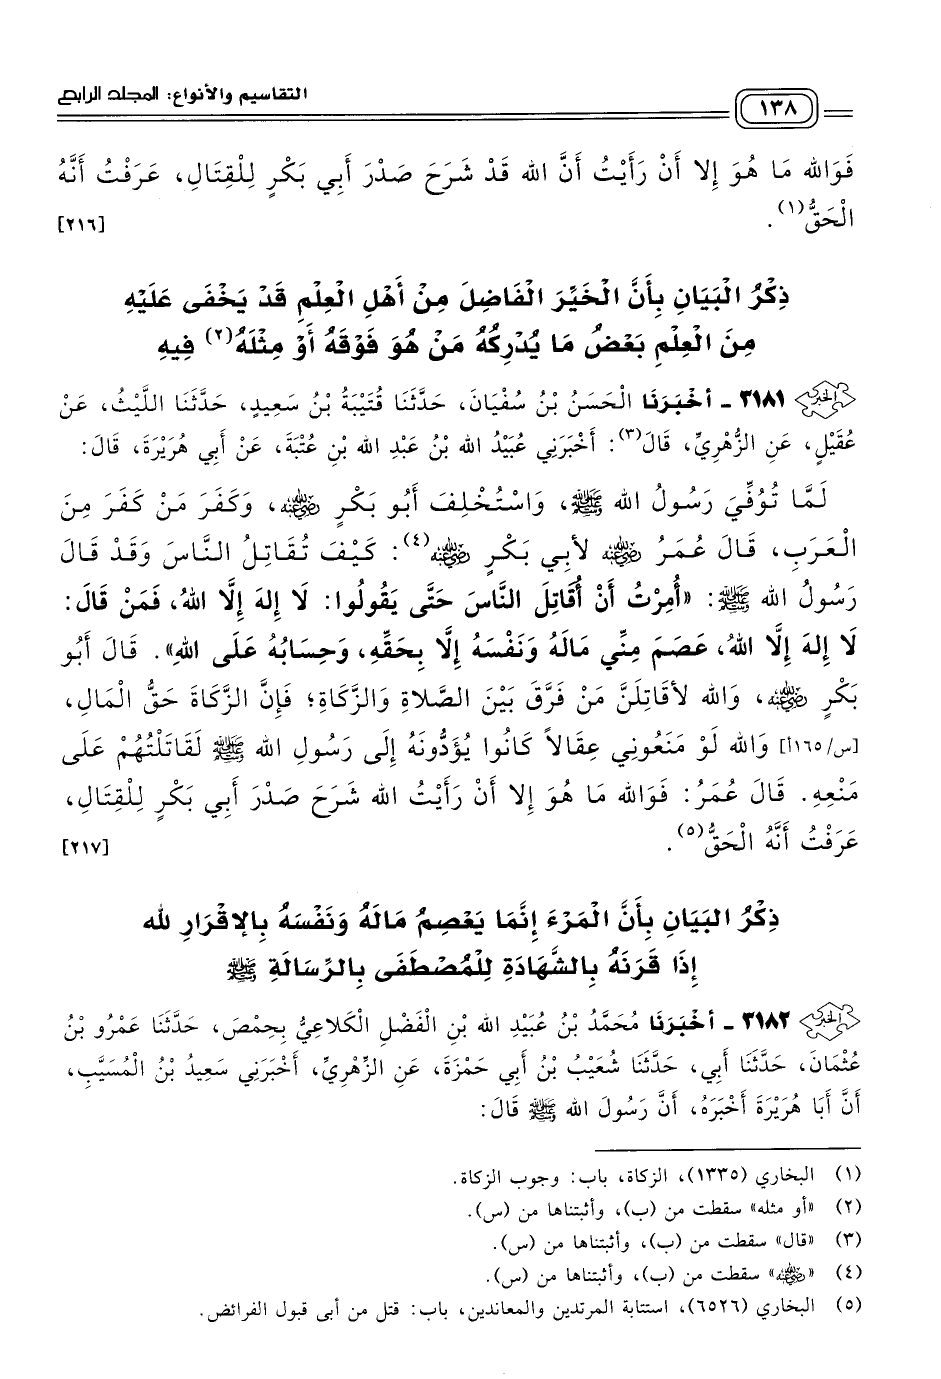 ١٣٨ التقاسيم والأنواع: المجلد الرابع
فَوَالله مَا هُوَ إلا أَنْ رَأَيْتُ أَنَّ الله قَدْ شَرَحَ صَدْرَ أَبِي بَكْرٍ لِلْقِتَالِ، عَرَفْتُ أَنَّهُ
الْحَقُّ(١). [٢١٦]
ذِكْرُ الْبَيَانِ بِأَنَّ الْخَيِّرَ الْفَاضِلَ مِنْ أَهْلِ الْعِلْمِ قَدْ يَخْفَى عَلَيْهِ
مِنَ الْعِلْمِ بَعْضُ مَا يُدْرِكُهُ مَنْ هُوَ فَوْقَهُ أَوْ مِثْلَهُ(٢) فِيهِ
٣١٨١ - أَخْبَرَنَا الْحَسَنُ بْنُ سُفْيَانَ، حَدَّثَنَا قُتَيْبَةُ بْنُ سَعِيدٍ، حَدَّثَنَا اللَّيْثُ، عَنْ
عُقَيْلٍ، عَنِ الزُّهْرِيِّ، قَالَ(٣): أَخْبَرَنِي عُبَيْدُ الله بْنُ عَبْدِ الله بْنِ عُتْبَةَ، عَنْ أَبِي هُرَيْرَةَ، قَالَ:
لَمَّا تُوُفِّيَ رَسُولُ الله ﷺ، وَاسْتُخْلِفَ أَبُو بَكْرٍ رضي الله عنه، وَكَفَرَ مَنْ كَفَرَ مِنَ
الْعَرَبِ، قَالَ عُمَرُ رضي الله عنه لأَبِي بَكْرٍ رضي الله عنه(٤): كَيْفَ تُقَاتِلُ النَّاسَ وَقَدْ قَالَ
رَسُولُ الله ﷺ: «أُمِرْتُ أَنْ أُقَاتِلَ النَّاسَ حَتَّى يَقُولُوا: لَا إِلهَ إِلَّا اللهُ، فَمَنْ قَالَ:
لَا إِلهَ إِلَّا اللهُ، عَصَمَ مِنِّي مَالَهُ وَنَفْسَهُ إِلَّا بِحَقِّهِ، وَحِسَابُهُ عَلَى اللهِ». قَالَ أَبُو
بَكْرٍ رضي الله عنه، وَالله لأُقَاتِلَنَّ مَنْ فَرَّقَ بَيْنَ الصَّلاةِ وَالزَّكَاةِ؛ فَإِنَّ الزَّكَاةَ حَقُّ الْمَالِ،
[س/١٦٥أ] وَالله لَوْ مَنَعُونِي عِقَالاً كَانُوا يُؤَدُّونَهُ إِلَى رَسُولِ الله ﷺ لَقَاتَلْتُهُمْ عَلَى
مَنْعِهِ. قَالَ عُمَرُ: فَوَالله مَا هُوَ إلا أَنْ رَأَيْتُ الله شَرَحَ صَدْرَ أَبِي بَكْرٍ لِلْقِتَالِ،
عَرَفْتُ أَنَّهُ الْحَقُّ(٥). [٢١٧]
ذِكْرُ الْبَيَانِ بِأَنَّ الْمَرْءَ إِنَّمَا يَعْصِمُ مَالَهُ وَنَفْسَهُ بِالإقْرَارِ لله
إِذَا قَرَنَهُ بِالشَّهَادَةِ لِلْمُصْطَفَى بِالرِّسَالَةِ ﷺ
٣١٨٢ - أَخْبَرَنَا مُحَمَّدُ بْنُ عُبَيْدِ الله بْنِ الْفَضْلِ الْكَلاعِيُّ بِحِمْصَ، حَدَّثَنَا عَمْرُو بْنُ
عُثْمَانَ، حَدَّثَنَا أَبِي، حَدَّثَنَا شُعَيْبُ بْنُ أَبِي حَمْزَةَ، عَنِ الزّهْرِيِّ، أَخْبَرَنِي سَعِيدُ بْنُ الْمُسَيَّبِ،
أَنَّ أَبَا هُرَيْرَةَ أَخْبَرَهُ، أَنَّ رَسُولَ الله ﷺ قَالَ:
(١) البخاري (١٣٣٥)، الزكاة، باب: وجوب الزكاة.
(٢) «أو مثله» سقطت من (ب)، وأثبتناها من (س).
(٣) «قال» سقطت من (ب)، وأثبتناها من (س).
(٤) «رضي الله عنه» سقطت من (ب)، وأثبتناها من (س).
(٥) البخاري (٦٥٢٦)، استتابة المرتدين والمعاندين، باب: قتل من أبى قبول الفرائض.